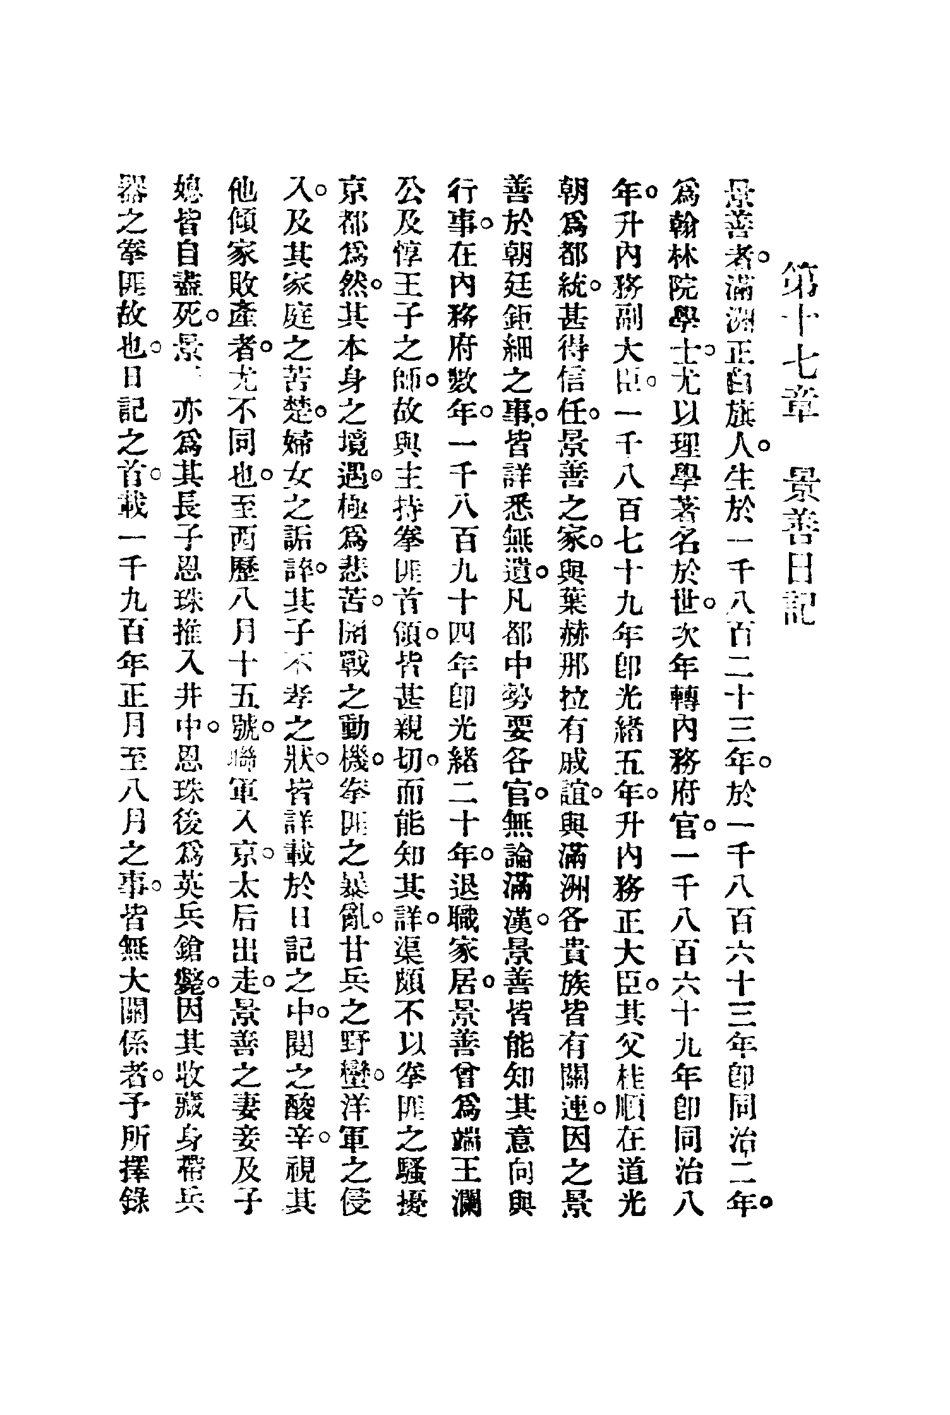 第十七章　景善日記
景善者。滿洲正白旗人。生於一千八百二十三年。於一千八百六十三年卽同治二年。
爲翰林院學士。尤以理學著名於世。次年轉內務府官。一千八百六十九年卽同治八
年。升內務副大臣。一千八百七十九年卽光緒五年。升內務正大臣。其父桂順在道光
朝爲都統。甚得信任。景善之家。與葉赫那拉有戚誼。與滿洲各貴族皆有關連。因之景
善於朝廷鉅細之事。皆詳悉無遺。凡都中勢要各官。無論滿漢。景善皆能知其意向與
行事。在內務府數年。一千八百九十四年卽光緒二十年。退職家居。景善曾爲端王瀾
公及惇王子之師。故與主持拳匪首領。皆甚親切。而能知其詳。渠頗不以拳匪之騷擾
京都爲然。其本身之境遇。極爲悲苦。開戰之動機。拳匪之暴亂。甘兵之野蠻。洋軍之侵
入。及其家庭之苦楚。婦女之詬誶。其子不孝之狀。皆詳載於日記之中。閱之酸辛。視其
他傾家敗產者。尤不同也。至西歷八月十五號。聯軍入京。太后出走。景善之妻妾及子
媳皆自盡死。景　亦爲其長子恩珠推入井中。恩珠後爲英兵鎗斃。因其收藏身帶兵
器之拳匪故也。日記之首。載一千九百年正月至八月之事。皆無大關係者。予所擇錄